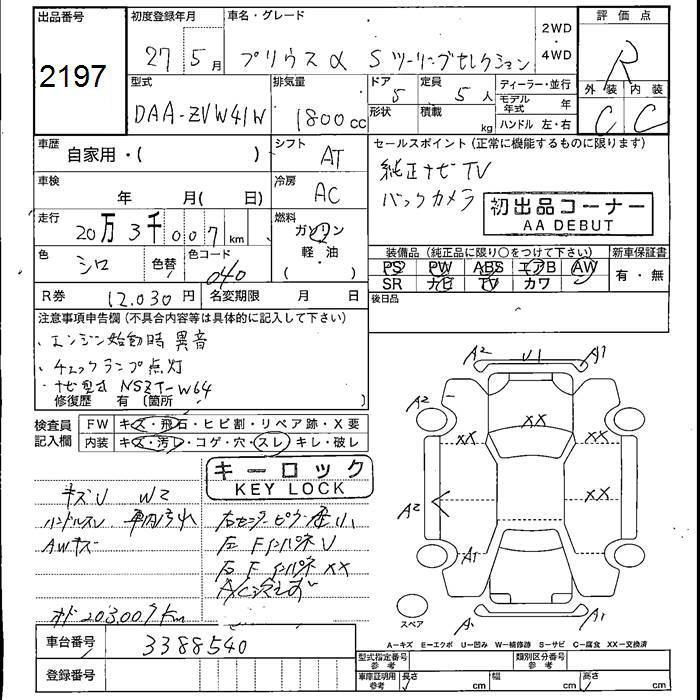 出品番号
2197
初度登録年月
27 5月
車名・グレード
プリウスα Sツーリングセレクション
2WD
・
4WD
評価点
R
外装 内装
C C
型式
DAA-ZVW41W
排気量
1800cc
ドア
5
形状
定員
5人
積載
kg
ディーラー・並行
モデル年式 年
ハンドル 左・右
車歴
自家用・( )
シフト
AT
車検
年 月( 日)
冷房
AC
走行
20万3千007km
燃料
ガソリン
軽・油
( )
色
シロ
色替
色コード
040
R券
12.030円
名変期限 月 日
セールスポイント(正常に機能するものに限ります)
純正ナビ TV
バックカメラ
初出品コーナー
AA DEBUT
装備品(純正品に限り○をつけて下さい)
PS PW ABS エアB AW
SR ナビ TV カワ
新車保証書
有・無
後日品
注意事項申告欄(不具合内容等は具体的に記入して下さい)
・エンジン始動時 異音
・チェックランプ点灯
・ナビ型式 NSZT-W64
修復歴 有(箇所 )
検査員
記入欄
FW キズ・飛石・ヒビ割・リペア跡・X要
内装 キズ・汚レ・コゲ・穴・スレ・キレ・破レ
キーロック
KEY LOCK
キズU W2
ハンドルスレ 車内汚れ
AWキズ
右センターピラー
左Fインパネ U
右Fインパネ XX
A/C冷えず
オド 203,007km
A2 U1 A1
A2 XX
XX XX
A2
A1
A1 A1
スペア
A-キズ E-エクボ U-凹み W-補修跡 S-サビ C-腐食 XX-交換済
車台番号
3388540
登録番号
型式指定番号
参考
類別区分番号
参考
車庫証明用
参考
長さ cm
幅 cm
高さ cm